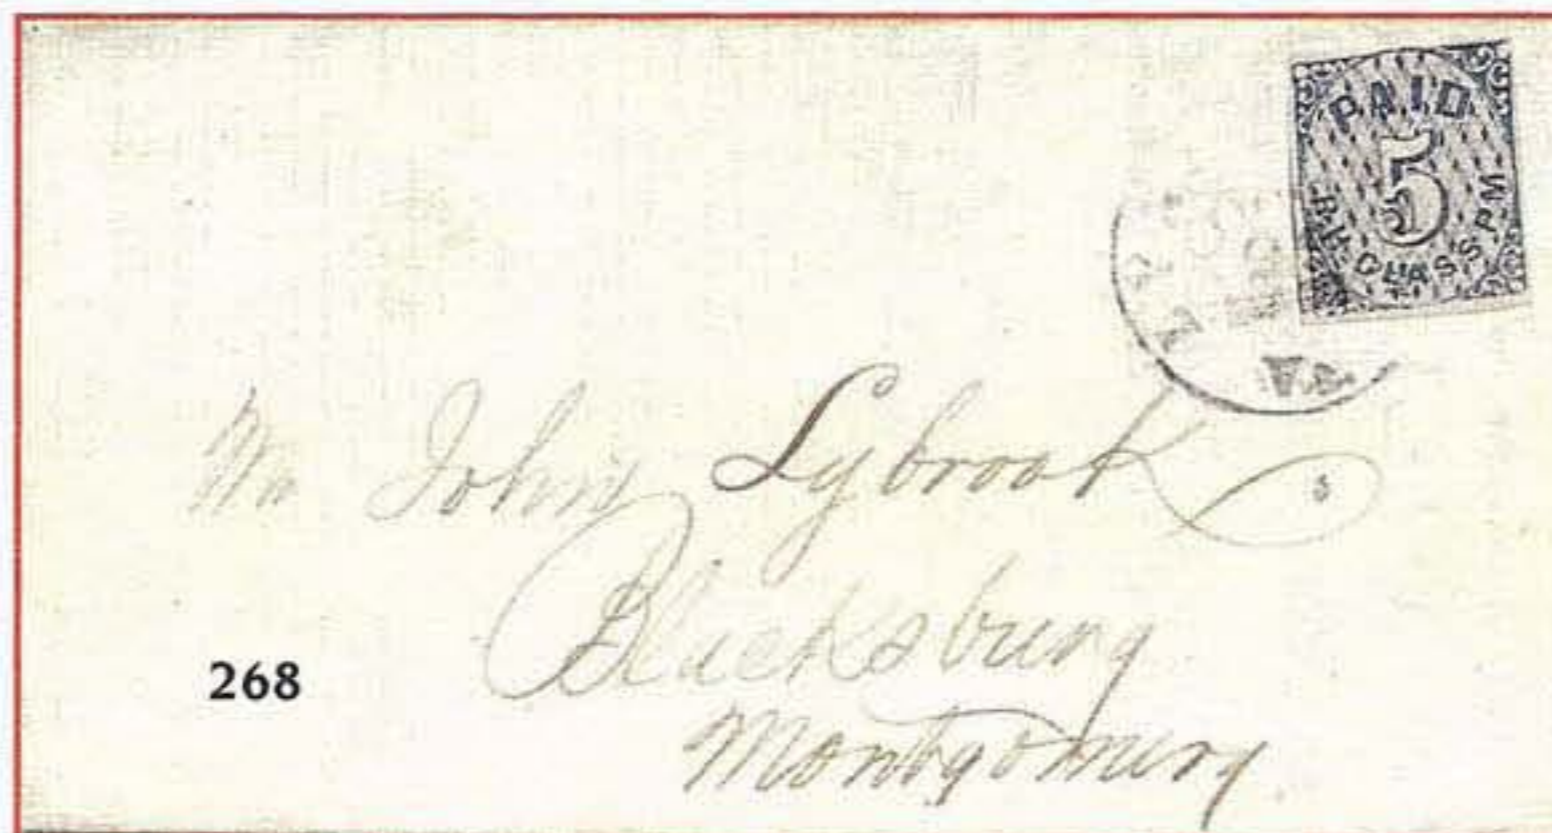 PAID
5
B.F. GLASS PM
VA
Mr John Lybrook
Blacksburg
Montgomery
268